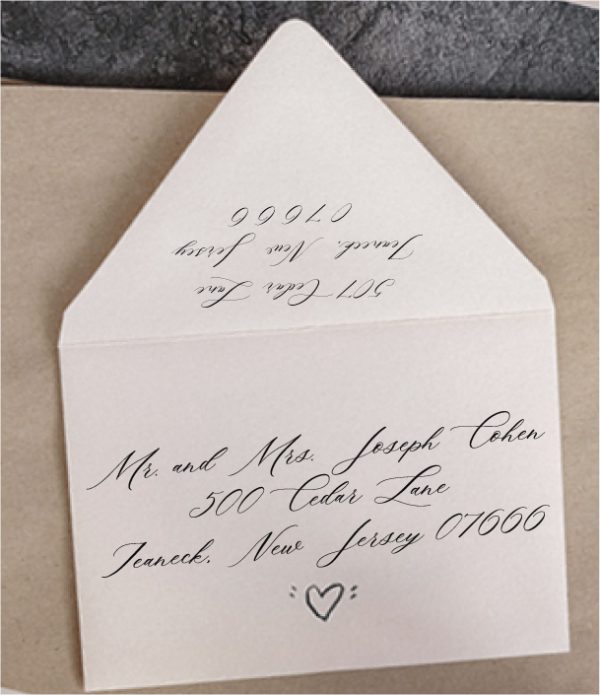 507 Cedar Lane
Teaneck, New Jersey
07666
Mr. and Mrs. Joseph Cohen
500 Cedar Lane
Teaneck, New Jersey 07666